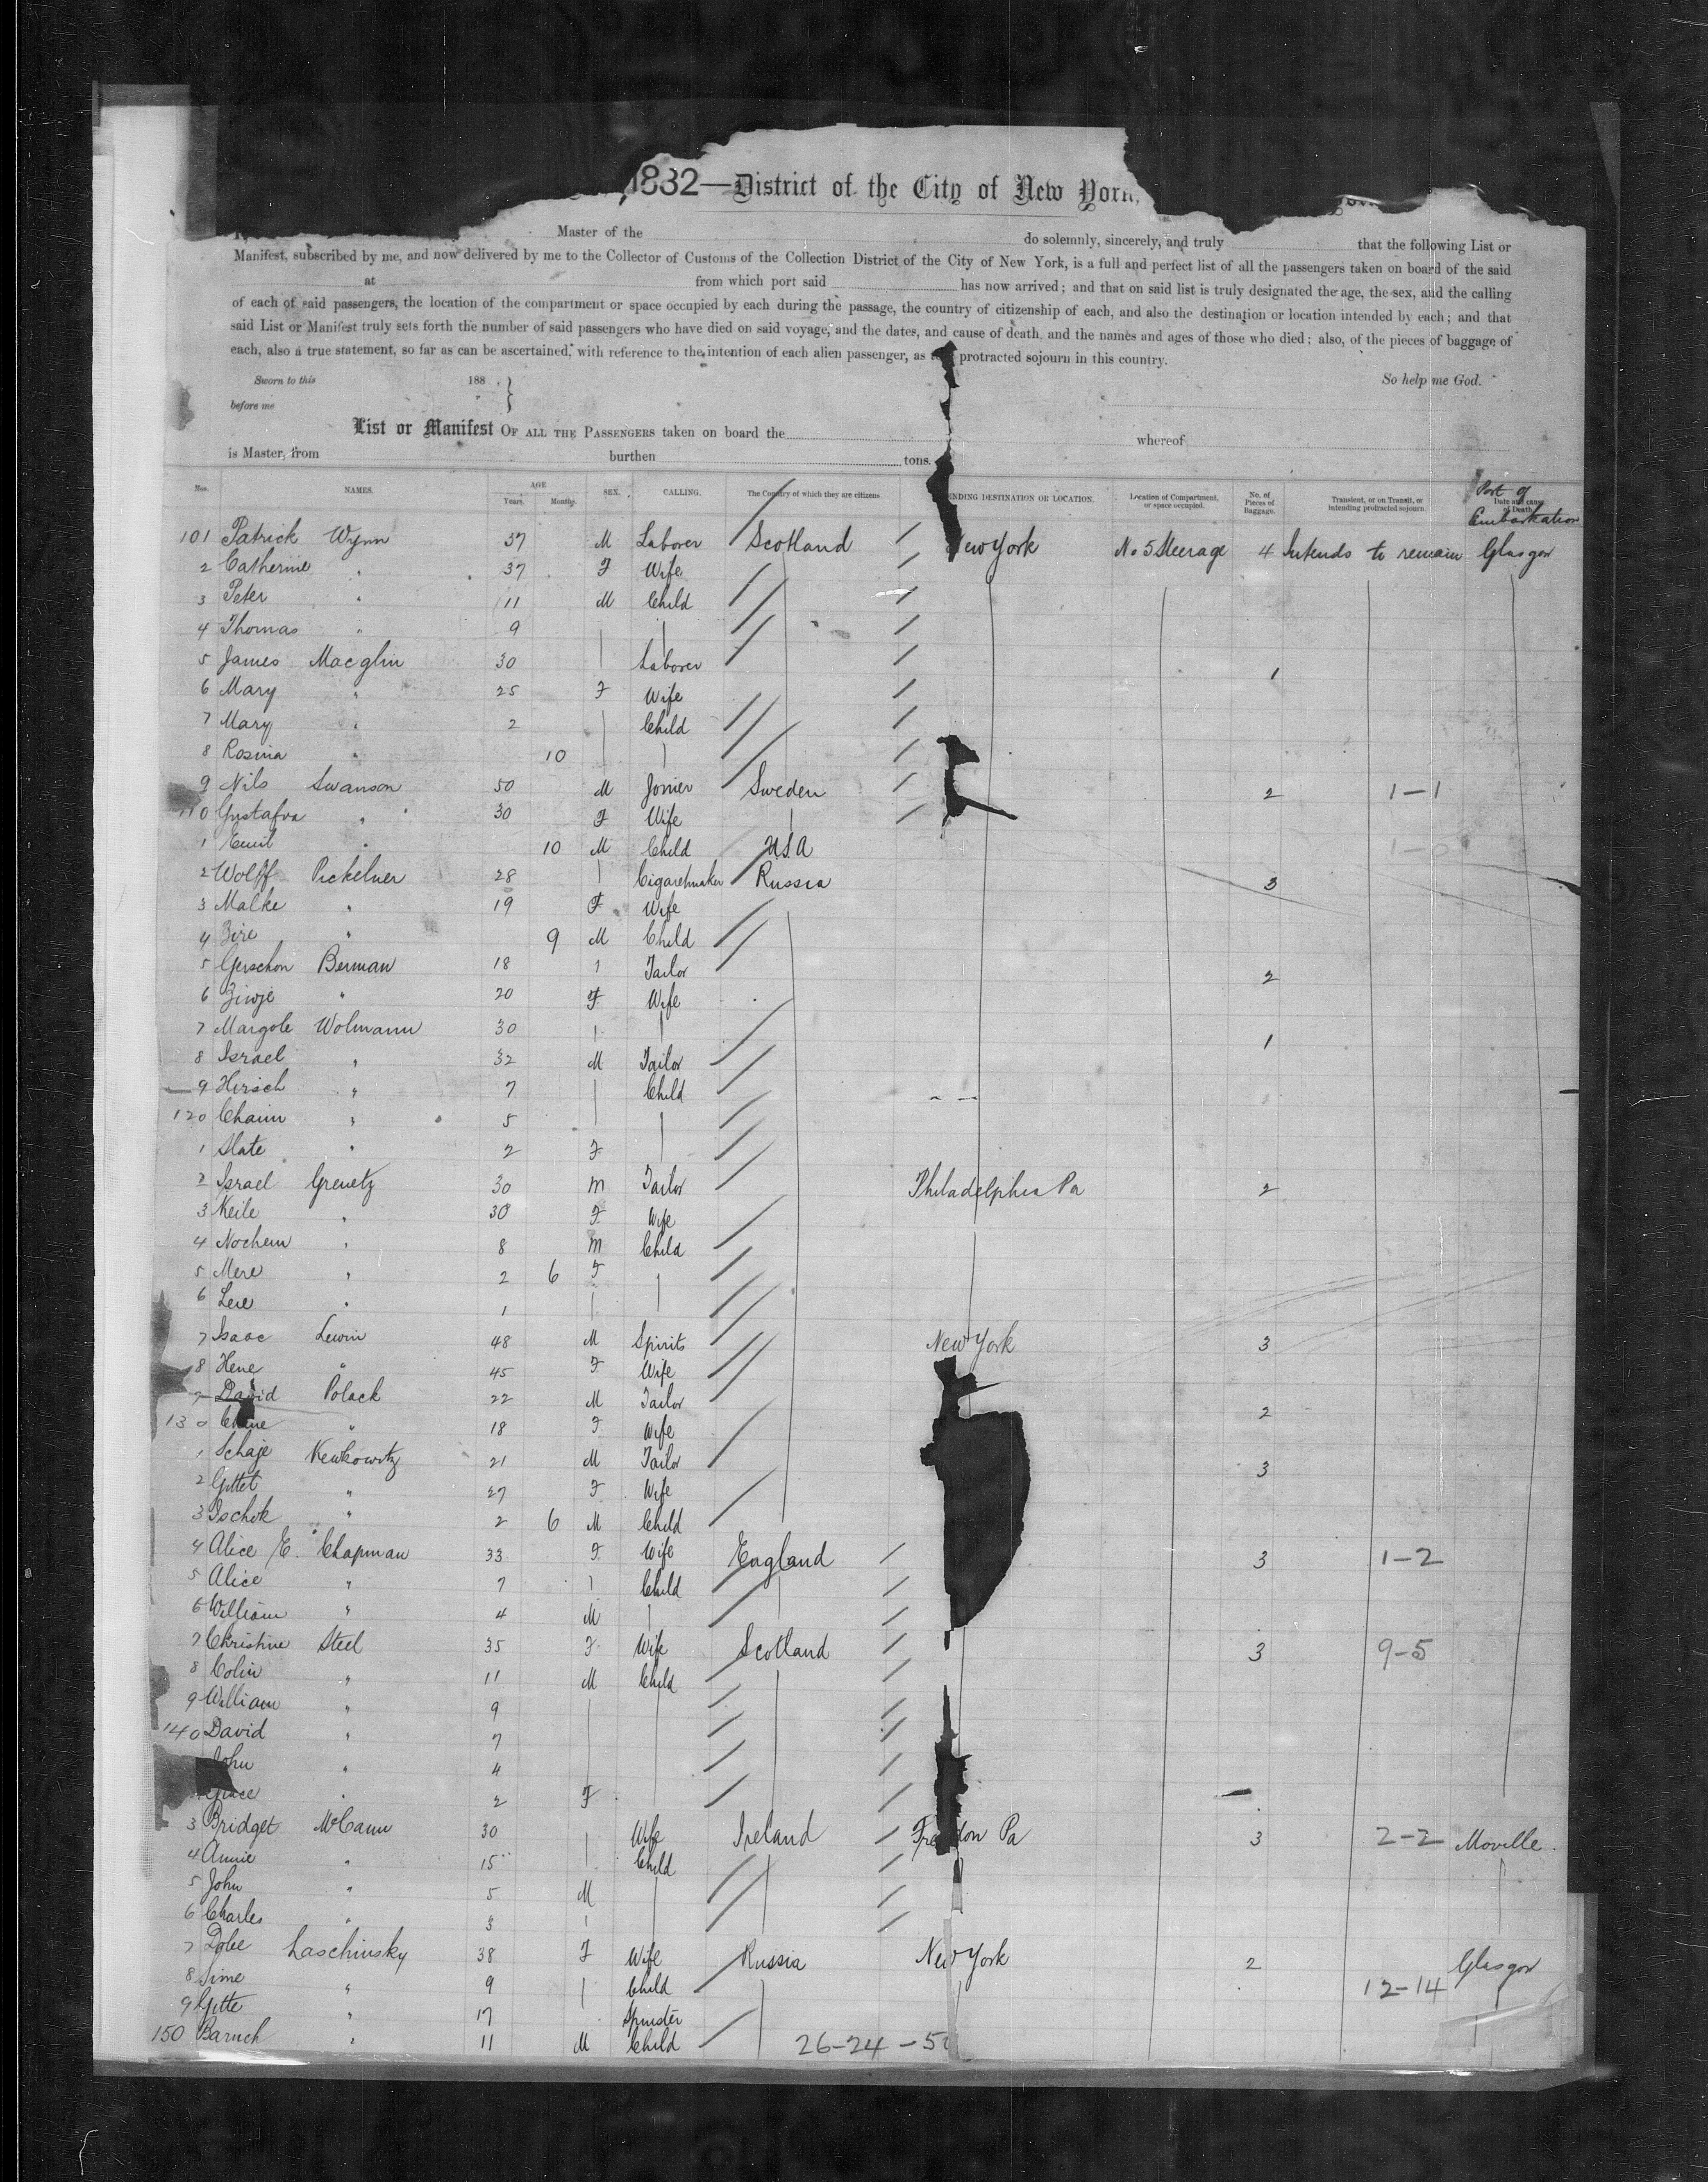 1882—District of the City of New York,
Master of the do solemnly, sincerely, and truly that the following List or
Manifest, subscribed by me, and now delivered by me to the Collector of Customs of the Collection District of the City of New York, is a full and perfect list of all the passengers taken on board of the said
at from which port said has now arrived; and that on said list is truly designated the age, the sex, and the calling
of each of said passengers, the location of the compartment or space occupied by each during the passage, the country of citizenship of each, and also the destination or location intended by each; and that
said List or Manifest truly sets forth the number of said passengers who have died on said voyage, and the dates, and cause of death, and the names and ages of those who died; also, of the pieces of baggage of
each, also a true statement, so far as can be ascertained, with reference to the intention of each alien passenger, as protracted sojourn in this country.
Sworn to this 188 So help me God.
before me
List or Manifest OF ALL THE PASSENGERS taken on board the whereof
is Master, from burthen tons.
Nos. NAMES. AGE Years. Months. SEX. CALLING. The Country of which they are citizens. DESTINATION OR LOCATION. Location of Compartment, or space occupied. No. of Pieces of Baggage. Transient, or on Transit, or intending protracted sojourn. Date and cause of Death. Port of Embarkation
101 Patrick Wynn 37 M Laborer Scotland New York No 5 Steerage 4 Intends to remain Glasgow
2 Catherine " 37 F Wife
3 Peter " 11 M Child
4 Thomas " 9
5 James Macglin 30 Laborer 1
6 Mary " 25 F Wife
7 Mary " 2 Child
8 Rosina " 10
9 Nils Swanson 50 M Joiner Sweden 2 1-1
110 Gustafva " 30 F Wife
1 Emil " 10 M Child USA 1-0
2 Wolff Pickelner 28 Cigaretmaker Russia 3
3 Malke " 19 F Wife
4 Zire " 9 M Child
5 Gerschon Berman 18 Tailor 2
6 Ziwje " 20 F Wife
7 Margole Wolmann 30 1
8 Israel " 32 M Tailor
9 Hirsch " 7 Child
120 Chaim " 5
1 Slate " 2 F
2 Israel Grenetz 30 M Tailor Philadelphia Pa 2
3 Keile " 30 F Wife
4 Nochem " 8 M Child
5 Mere " 2 6 F
6 Lere " 1
7 Isaac Lewin 48 M Spirits New York 3
8 Hene " 45 F Wife
9 David Polack 22 M Tailor 2
130 " 18 F Wife
1 Schaje Newkowitz 21 M Tailor 3
2 Gittet " 27 F Wife
3 Ischok " 2 6 M Child
4 Alice E. Chapman 33 F Wife England 3 1-2
5 Alice " 7 Child
6 William " 4 M
7 Christine Steel 35 F Wife Scotland 3 9-5
8 Colin " 11 M Child
9 William " 9
140 David " 7
John " 4
Grace " 2 F
3 Bridget McCann 30 Wife Ireland Pa 3 2-2 Moville
4 Annie " 15 Child
5 John " 5 M
6 Charles " 3
7 Dobe Laschinsky 38 F Wife Russia New York 2 Glasgow
8 Sime " 9 Child 12-14
9 Gitte " 17 Spinster
150 Baruch " 11 M Child 26-24-50